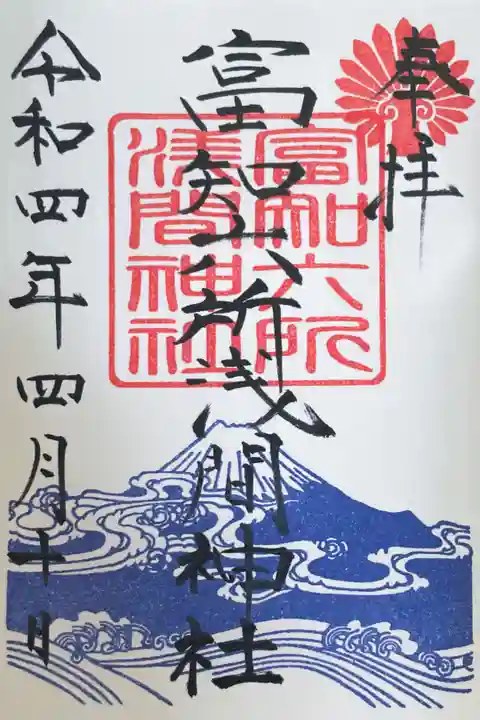 奉拝
富知六所浅間神社
富知六所
淺間神社
令和四年四月十日